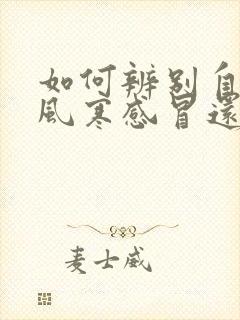 如何辨别自
风寒感冒还
麦士威